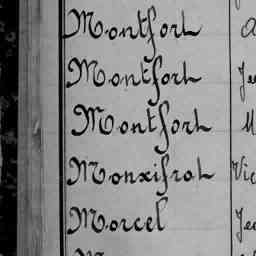 Montfort
Montfort Je
Montfort M
Monxifrot Vic
Morcel Je